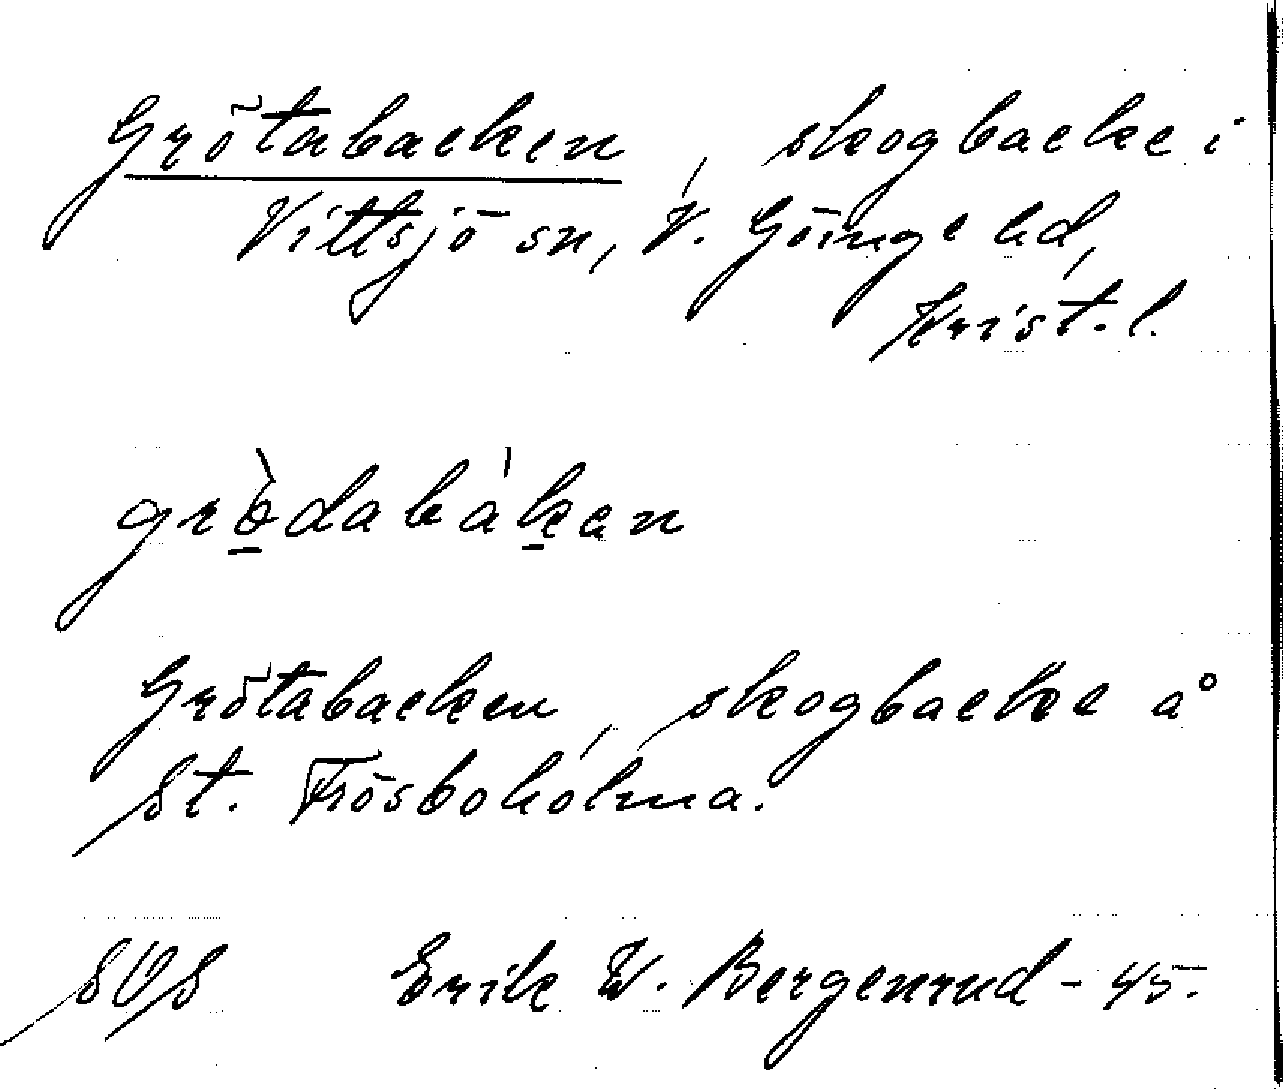 Grötabacken, skogbacke i
Vittsjö sn, V. Göinge hd,
Krist. l.
grö̀dabákan
Grötabacken, skogbacke å
St. Frösboholma.
SOS Erik W. Bergenrud - 45.